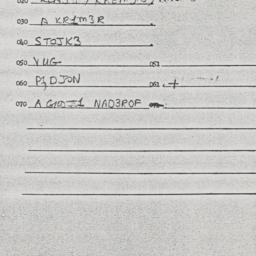 030 A KR1M3R
040 STOJK3
050 VUG 051
060 P3DJON 061
070 NAD3ROF